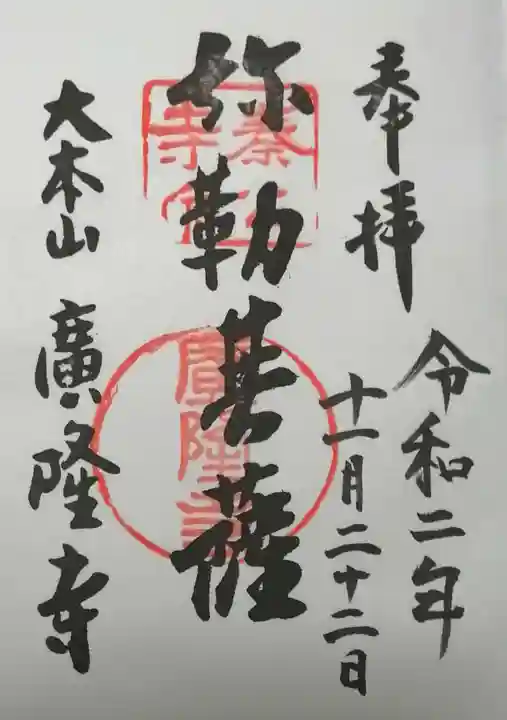 奉拝
令和二年
十一月二十二日
弥勒菩薩
大本山 廣隆寺
廣隆寺